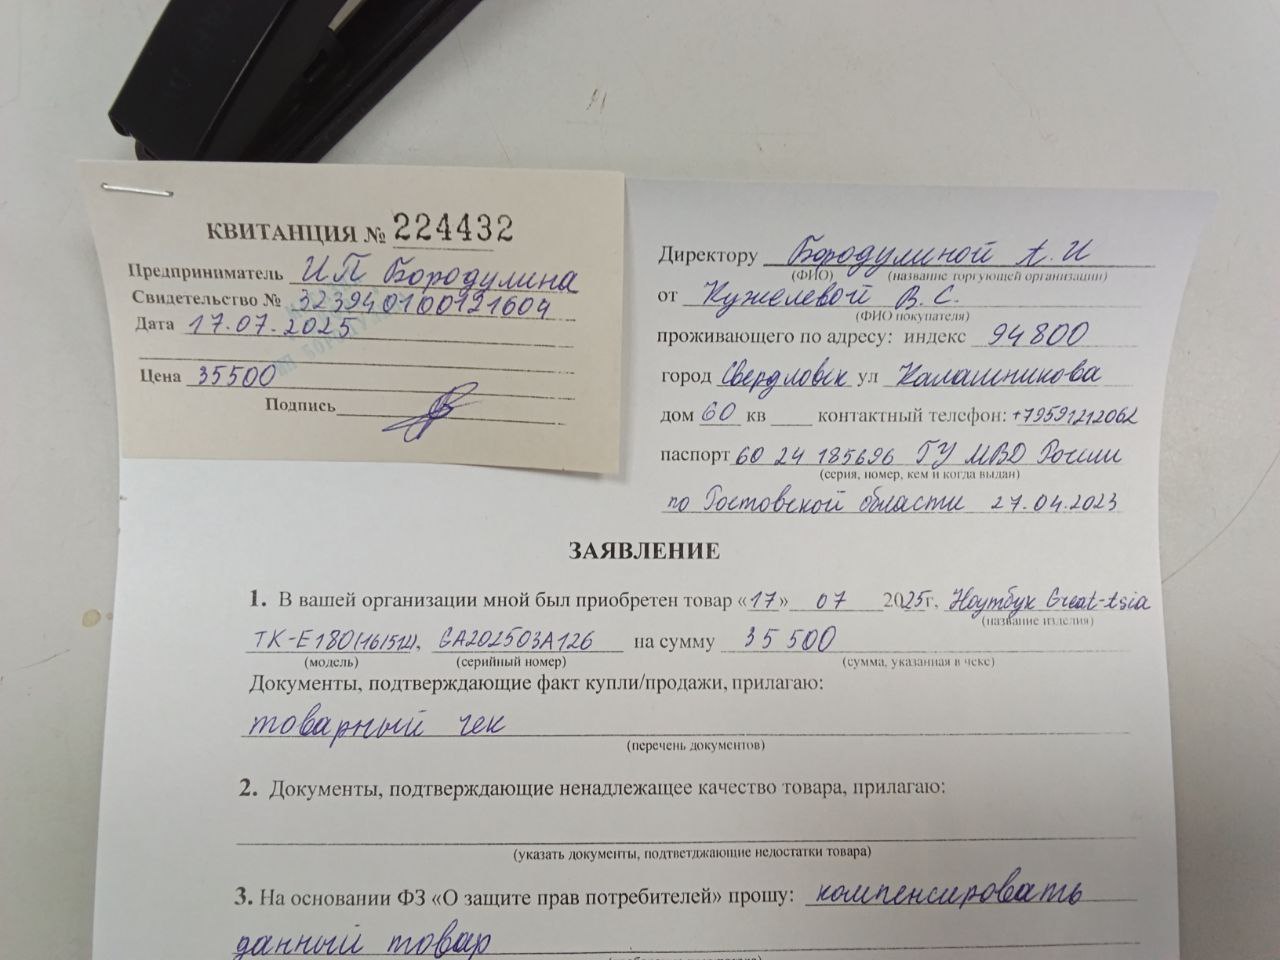 КВИТАНЦИЯ № 224432
Предприниматель ИП Бородулина
Свидетельство № 323940100121604
Дата 17.07.2025
Цена 35500
Подпись
Директору Бородулиной А. И
(ФИО) (название торгующей организации)
от Кужелевой В. С.
(ФИО покупателя)
проживающего по адресу: индекс 94800
город Свердловск ул Калашникова
дом 60 кв контактный телефон: +79591212062
паспорт 60 24 185696 ГУ МВД России
(серия, номер, кем и когда выдан)
по Ростовской области 27.04.2023
ЗАЯВЛЕНИЕ
1. В вашей организации мной был приобретен товар «17» 07 2025г, Ноутбук Great-tsia
(название изделия)
TK-E180(16/512), GA202503A126 на сумму 35 500
(модель) (серийный номер) (сумма, указанная в чеке)
Документы, подтверждающие факт купли/продажи, прилагаю:
товарный чек
(перечень документов)
2. Документы, подтверждающие ненадлежащее качество товара, прилагаю:
(указать документы, подтветджающие недостатки товара)
3. На основании ФЗ «О защите прав потребителей» прошу: компенсировать
данный товар